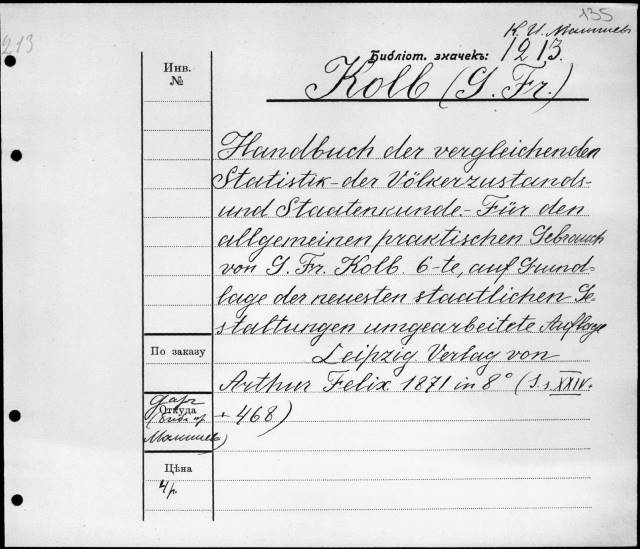 135
213
К. И. Малышев
Библіот. значекъ: 1213.
Инв.
№
Kolb (G. Fr.)
Handbuch der vergleichenden
Statistik - der Völkerzustands-
und Staatenkunde. - Für den
allgemeinen praktischen Gebrauch
von G. Fr. Kolb. 6-te, auf Grund-
lage der neuesten staatlichen Ge-
staltungen umgearbeitete Auflage
По заказу
Leipzig Verlag von
Arthur Felix 1871 in 8° (S. XXIV.
+ 468)
Даръ
Откуда
Малышевъ)
Цѣна
4 р.